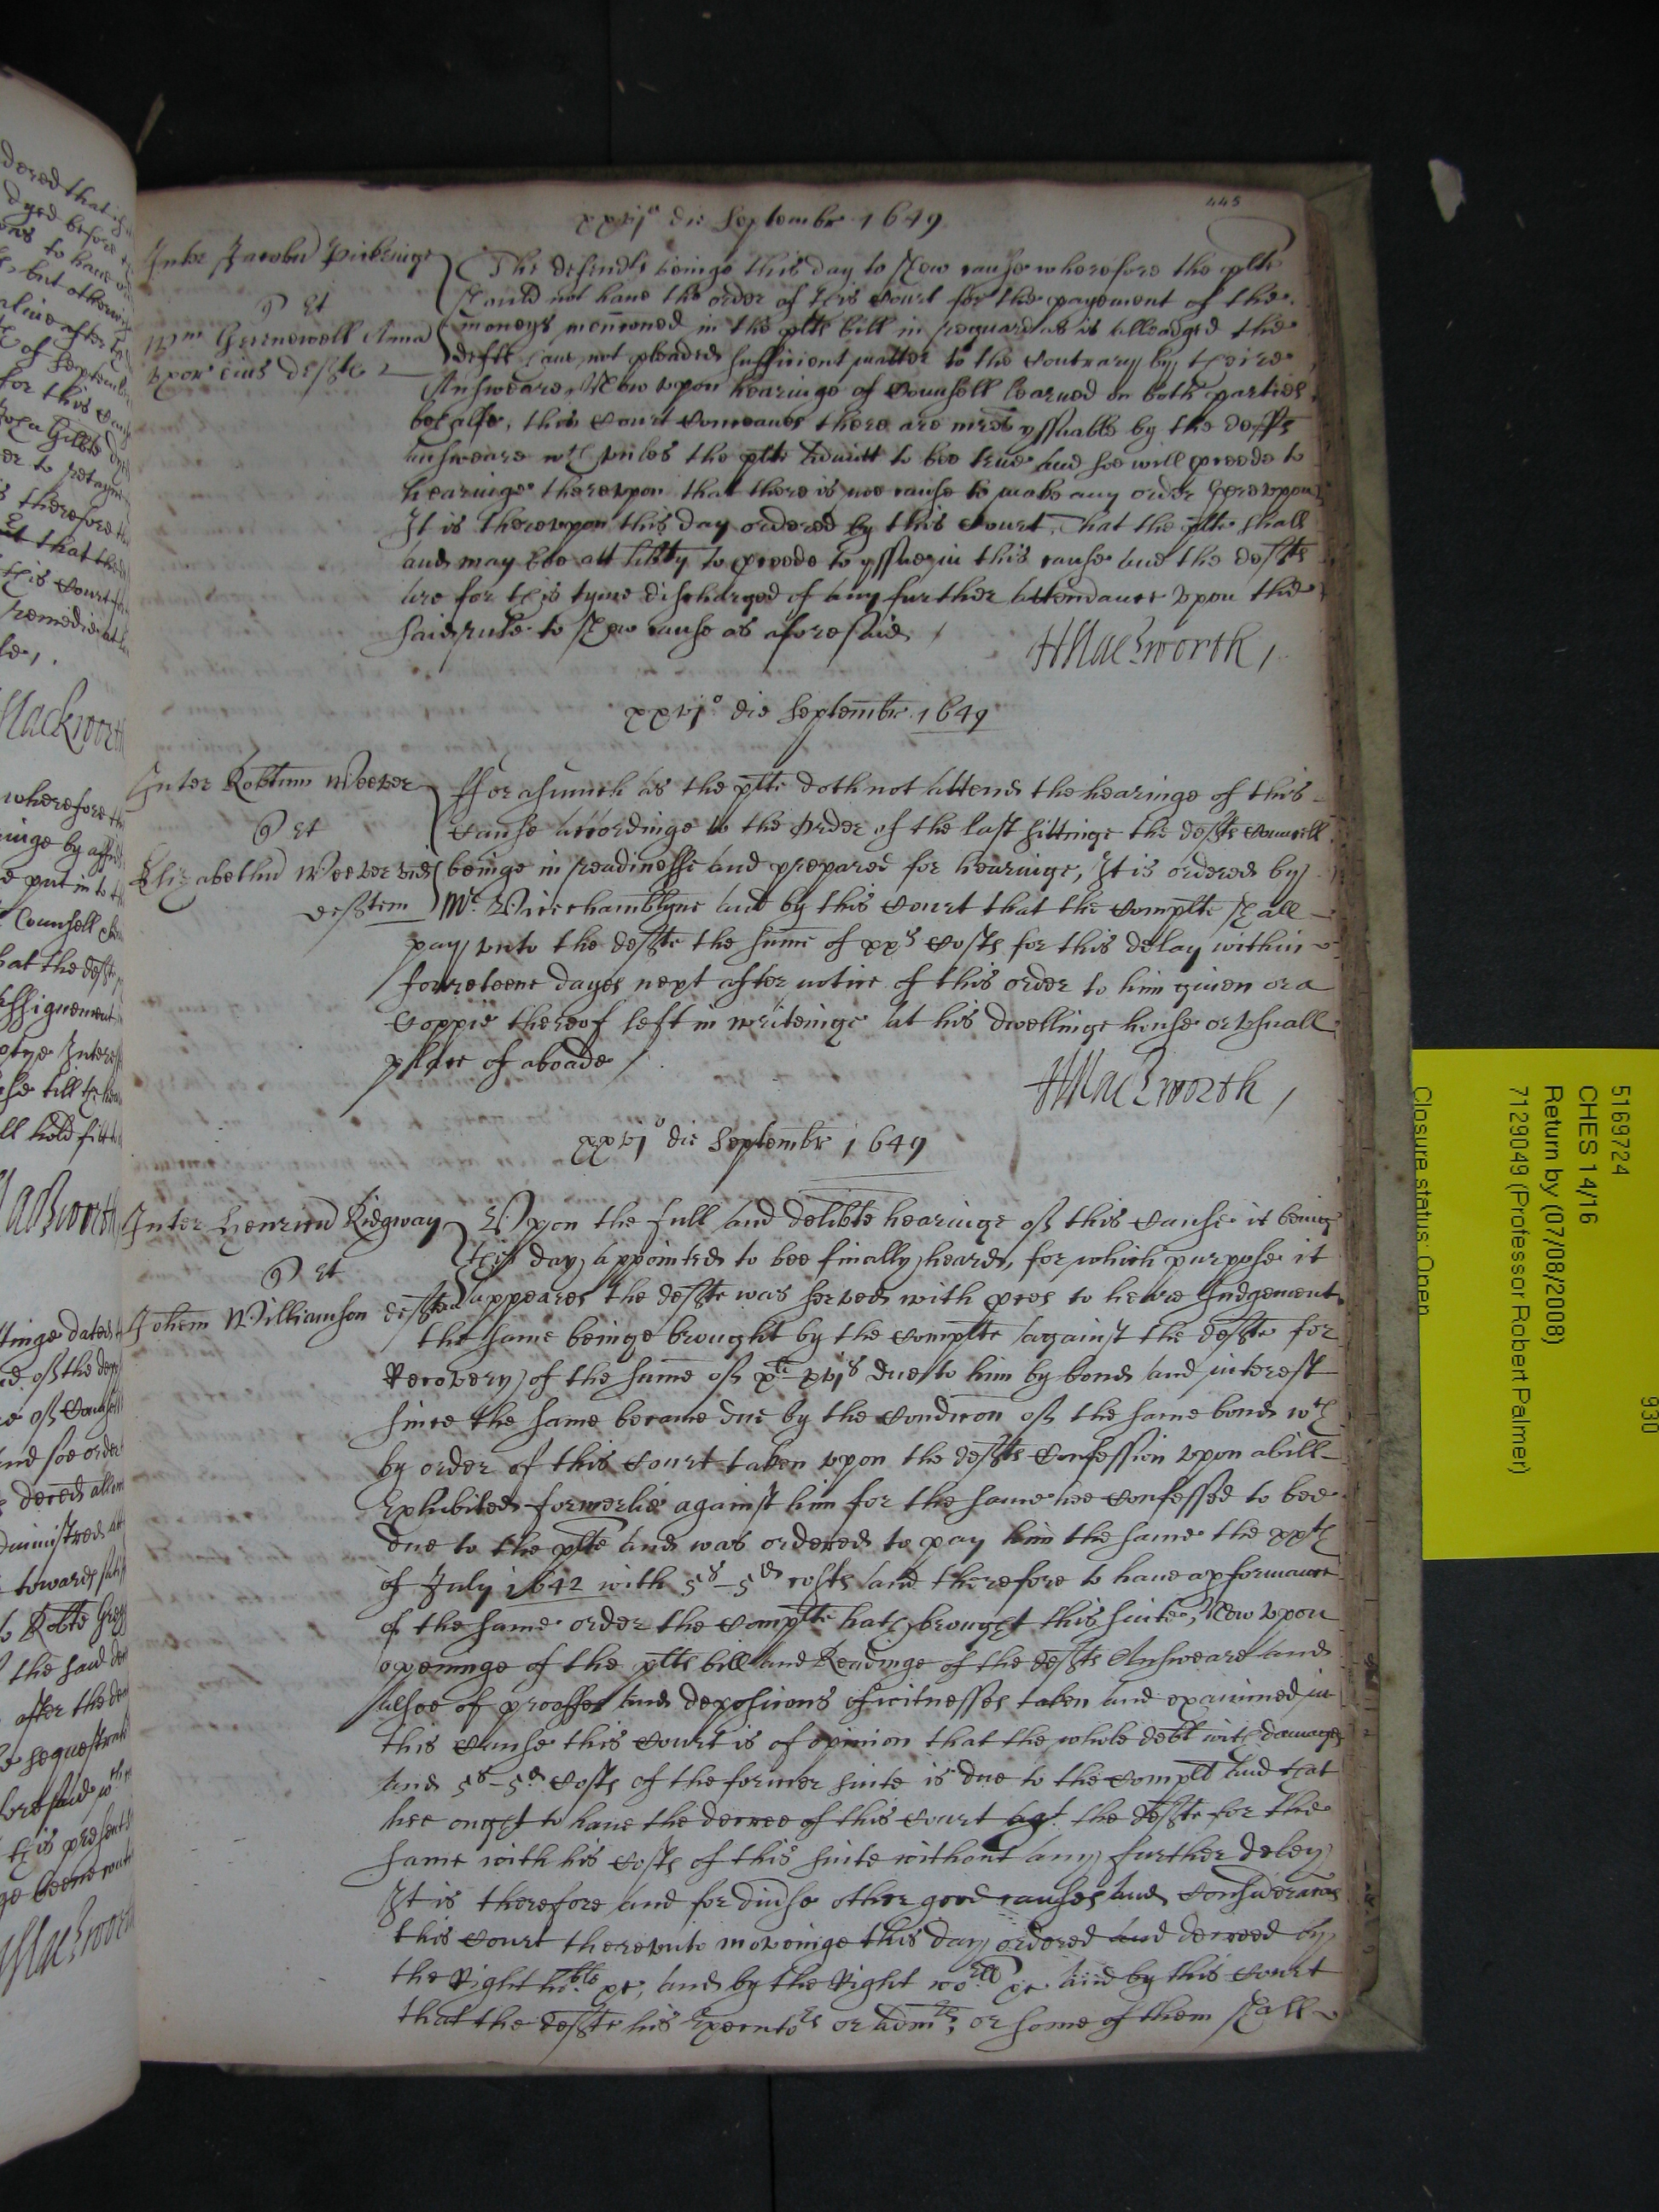 445
xxvj° die Septembr 1649
Inter Jacobu Pickeringe
q et
Wm Greenewell Anna
uxor eius defte
The defendts beinge this day to shew cause wherefore the plte
should not have the order of this Court for the payement of the
moneys menconed in the plts bill in reguard as is alleadged the
defts have not pleaded sufficient matter to the Contrary by theire
Answeare, Now upon hearinge of Counsell learned on both parties
behalfe, this Court Conceaves there are mrs yssuable by the defts
answeare wch unles the plte Admitt to bee true and soe will proceede to
hearinge thereupon that there is noe cause to make any order hereupon
It is thereupon this day ordered by this Court, That the plte shall
and may bee att libty to proceede to yssue in this cause and the defts
are for this tyme discharged of any further attendance upon the
said rule to shew cause as aforesaid /
HMackworth /
xxvj° die Septembr 1649
Inter Robtum Weever
q et
Elizabethu Weever vid
deftem
fforasmuch as the plte doth not attend the hearinge of this
Cause accordinge to the Order of the last sittinge the defts Councell
beinge in readinesse and prepared for hearinge, It is ordered by
Mr Vicechamblyne and by this Court that the Complte shall
pay unto the defte the sume of xxs Costs for this delay within
foureteene dayes next after notice of this order to him given or a
Coppie thereof left in writeinge at his dwellinge house or usuall
place of aboade /
HMackworth /
xxvj° die Septembr 1649
Inter Henricu Ridgway
q et
Johem Williamson deftem
Upon the full and delibte hearinge of this Cause it beinge
this day appointed to bee finally heard, for which purpose it
appeares the defte was served with pces to heare Judgement
the same beinge brought by the Complte against the defte for
Recovery of the sume of xli xvjs due to him by bond and interest
since the same became due by the Condicon of the same bond wch
by order of this Court taken upon the defts Confession upon a bill
Exhibited formerlie against him for the same hee Confessed to bee
due to the plte and was ordered to pay him the same the xxth
of July 1642 with 5s-5d costs and therefore to have a pformance
of the same order the Complte hath brought this suite, Now upon
openinge of the plts bill and Readinge of the defts Answeare and
alsoe of prooffes and deposicons of witnesses taken and examined in
this Cause this Court is of opinion that the whole debt with damages
and 5s-5d Costs of the former suite is due to the Complt And that
hee ought to have the decree of this Court agt the defte for the
same with his Costs of this suite without any further deley
It is therefore and for divse other good causes and Consideracons
this Court thereunto moveinge this day ordered and decreed by
the Right hoble &c, and by the Right woll &c and by this Court
that the defte his Executors or Admrs, or some of them shall
5169724
CHES 14/16
Return by (07/08/2008)
7129049 (Professor Robert Palmer)
Closure status: Open
930